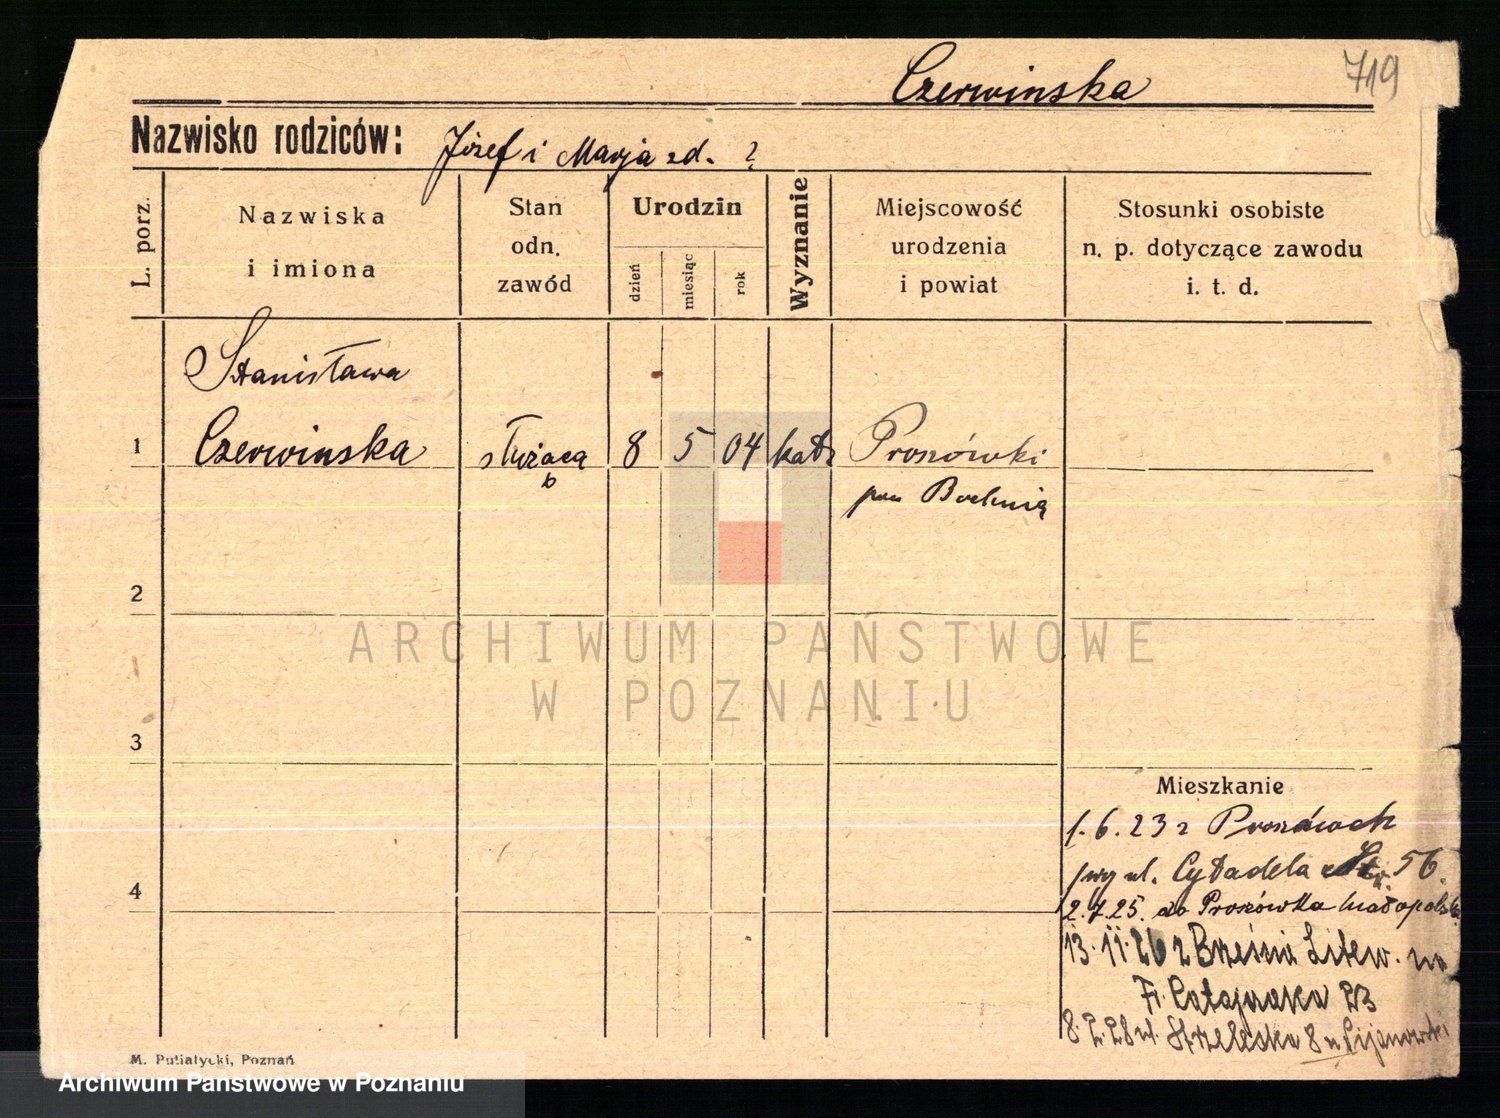 719
Czerwinska
Nazwisko rodziców: Józef i Marja zd. ?
L. porz.
Nazwiska
i imiona
Stan
odn.
zawód
Urodzin
dzień
miesiąc
rok
Wyznanie
Miejscowość
urodzenia
i powiat
Stosunki osobiste
n. p. dotyczące zawodu
i. t. d.
Stanisława
1 Czerwinska służąca 8 5 04 kat Proszówki
pow Bochnia
2
ARCHIWUM PAŃSTWOWE
W POZNANIU
3
Mieszkanie
1.6.23 z
ul. Cytadela 56.
4
2.7.25. do Proszówka Małopolska
13.11.26 z Litew. na
Fr. Ratajczaka 23
8.2.28 ul. Strzelecka 8
M. Putiatycki, Poznań
Archiwum Państwowe w Poznaniu